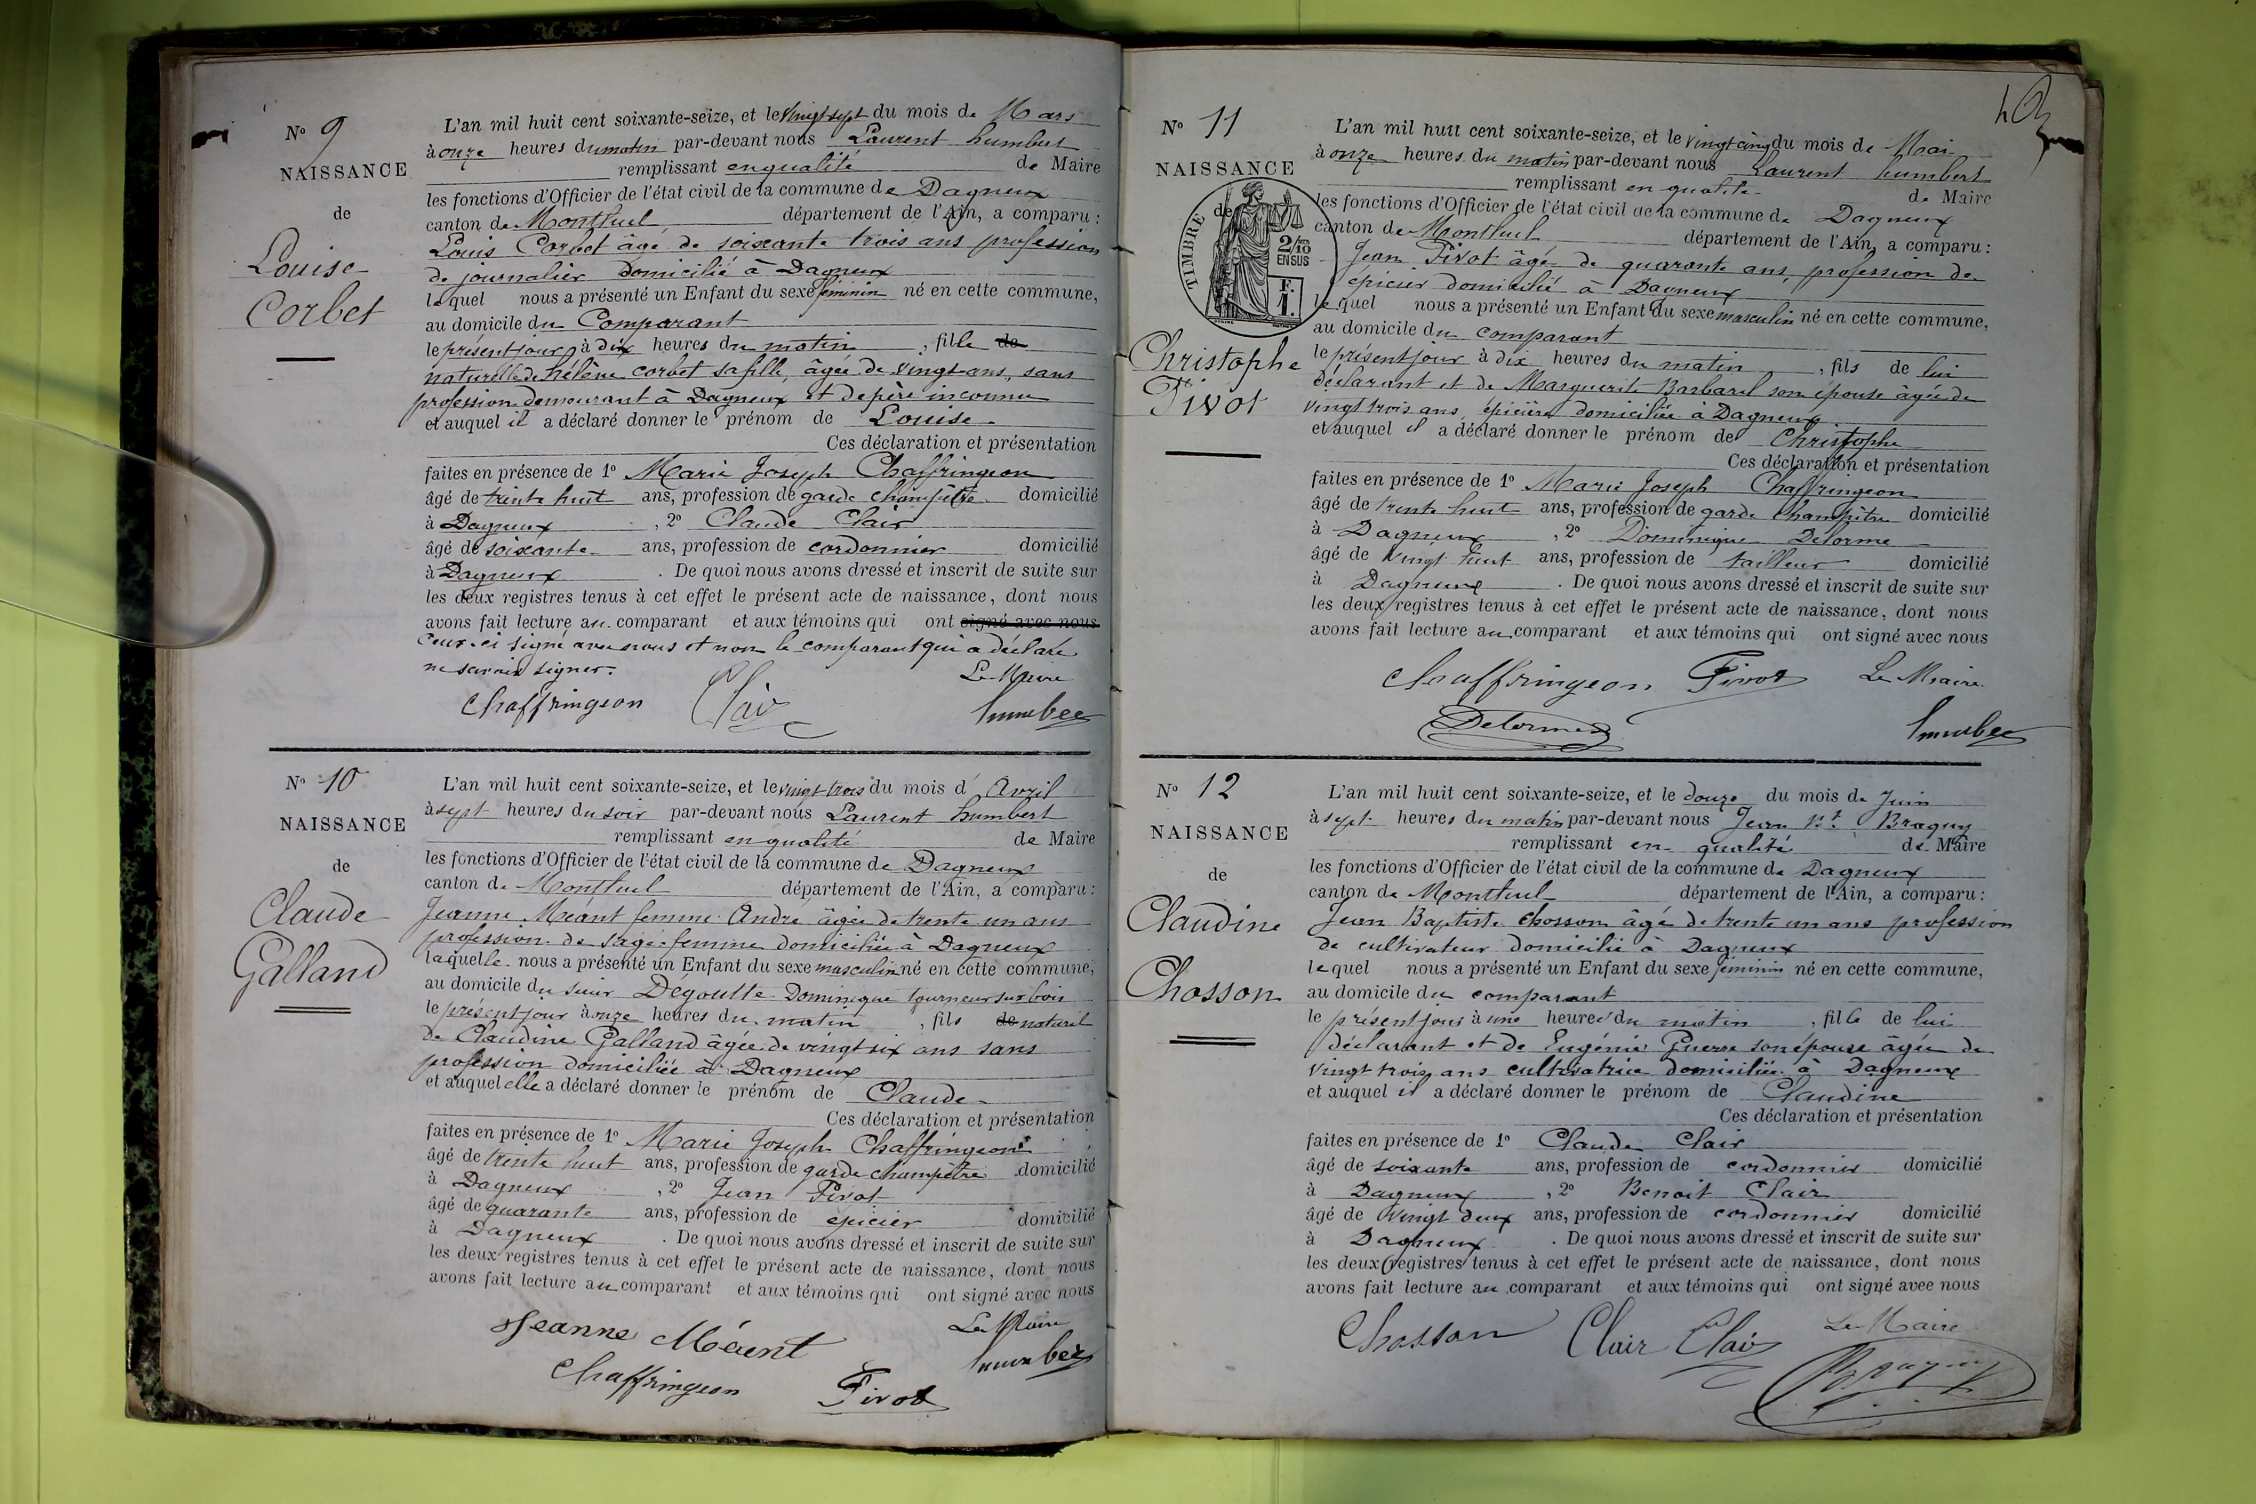 N° 9
NAISSANCE
de
Louise
Corbet
L'an mil huit cent soixante-seize, et le vingt sept du mois de Mars
à onze heures du matin par-devant nous Laurent humbert
remplissant en qualité de Maire
les fonctions d'Officier de l'état civil de la commune de Dagneux
canton de Montluel département de l'Ain, a comparu :
Louis Corbet âgé de soixante trois ans profession
de journalier domicilié à Dagneux
lequel nous a présenté un Enfant du sexe féminin né en cette commune,
au domicile du Comparant
le présent jour à dix heures du matin, fille de
naturelle de hélène corbet sa fille, âgée de vingt ans, sans
profession demeurant à Dagneux et de père inconnu
et auquel il a déclaré donner le prénom de Louise
Ces déclaration et présentation
faites en présence de 1° Marie Joseph Chaffringeon
âgé de trente huit ans, profession de garde champêtre domicilié
à Dagneux, 2° Claude Clair
âgé de soixante ans, profession de cordonnier domicilié
à Dagneux. De quoi nous avons dressé et inscrit de suite sur
les deux registres tenus à cet effet le présent acte de naissance, dont nous
avons fait lecture au comparant et aux témoins qui ont signé avec nous
ceux-ci signé avec nous et non le comparant qui a déclaré
ne savoir signer.
Le Maire
Chaffringeon Clair humbert
N° 10
NAISSANCE
de
Claude
Galland
L'an mil huit cent soixante-seize, et le vingt trois du mois d'Avril
à sept heures du soir par-devant nous Laurent humbert
remplissant en qualité de Maire
les fonctions d'Officier de l'état civil de la commune de Dagneux
canton de Montluel département de l'Ain, a comparu :
Jeanne Méant femme André âgée de trente un ans
profession de sage-femme domiciliée à Dagneux
laquelle nous a présenté un Enfant du sexe masculin né en cette commune,
au domicile du sieur Degoutte Dominique tourneur sur bois
le présent jour à onze heures du matin, fils de naturel
de Claudine Galland âgée de vingt six ans sans
profession domiciliée à Dagneux
et auquel elle a déclaré donner le prénom de Claude
Ces déclaration et présentation
faites en présence de 1° Marie Joseph Chaffringeon
âgé de trente huit ans, profession de garde champêtre domicilié
à Dagneux, 2° Jean Pivot
âgé de quarante ans, profession de épicier domicilié
à Dagneux. De quoi nous avons dressé et inscrit de suite sur
les deux registres tenus à cet effet le présent acte de naissance, dont nous
avons fait lecture au comparant et aux témoins qui ont signé avec nous
Jeanne Méant Le Maire
Chaffringeon Pivot humbert
N° 11
NAISSANCE
de
TIMBRE
2/10
EN SUS
F.
1.
Christophe
Pivot
L'an mil huit cent soixante-seize, et le vingt cinq du mois de Mai
à onze heures du matin par-devant nous Laurent humbert
remplissant en qualité de Maire
les fonctions d'Officier de l'état civil de la commune de Dagneux
canton de Montluel département de l'Ain, a comparu :
Jean Pivot âgé de quarante ans, profession de
épicier domicilié à Dagneux
lequel nous a présenté un Enfant du sexe masculin né en cette commune,
au domicile du comparant
le présent jour à dix heures du matin, fils de lui
déclarant et de Marguerite Barbarel son épouse âgée de
vingt trois ans, épicière domiciliée à Dagneux
et auquel il a déclaré donner le prénom de Christophe
Ces déclaration et présentation
faites en présence de 1° Marie Joseph Chaffringeon
âgé de trente huit ans, profession de garde champêtre domicilié
à Dagneux, 2° Dominique Delorme
âgé de vingt huit ans, profession de tailleur domicilié
à Dagneux. De quoi nous avons dressé et inscrit de suite sur
les deux registres tenus à cet effet le présent acte de naissance, dont nous
avons fait lecture au comparant et aux témoins qui ont signé avec nous
Chaffringeon Pivot Le Maire
Delorme humbert
N° 12
NAISSANCE
de
Claudine
Chosson
L'an mil huit cent soixante-seize, et le douze du mois de Juin
à sept heures du matin par-devant nous Jean Bt. Braguy
remplissant en qualité de Maire
les fonctions d'Officier de l'état civil de la commune de Dagneux
canton de Montluel département de l'Ain, a comparu :
Jean Baptiste Chosson âgé de trente un ans profession
de cultivateur domicilié à Dagneux
lequel nous a présenté un Enfant du sexe féminin né en cette commune,
au domicile du comparant
le présent jour à une heure du matin, fille de lui
déclarant et de Eugénie Guerre son épouse âgée de
vingt trois ans cultivatrice domiciliée à Dagneux
et auquel il a déclaré donner le prénom de Claudine
Ces déclaration et présentation
faites en présence de 1° Claude Clair
âgé de soixante ans, profession de cordonnier domicilié
à Dagneux, 2° Benoit Clair
âgé de vingt deux ans, profession de cordonnier domicilié
à Dagneux. De quoi nous avons dressé et inscrit de suite sur
les deux registres tenus à cet effet le présent acte de naissance, dont nous
avons fait lecture au comparant et aux témoins qui ont signé avec nous
Chosson Clair Clair Le Maire